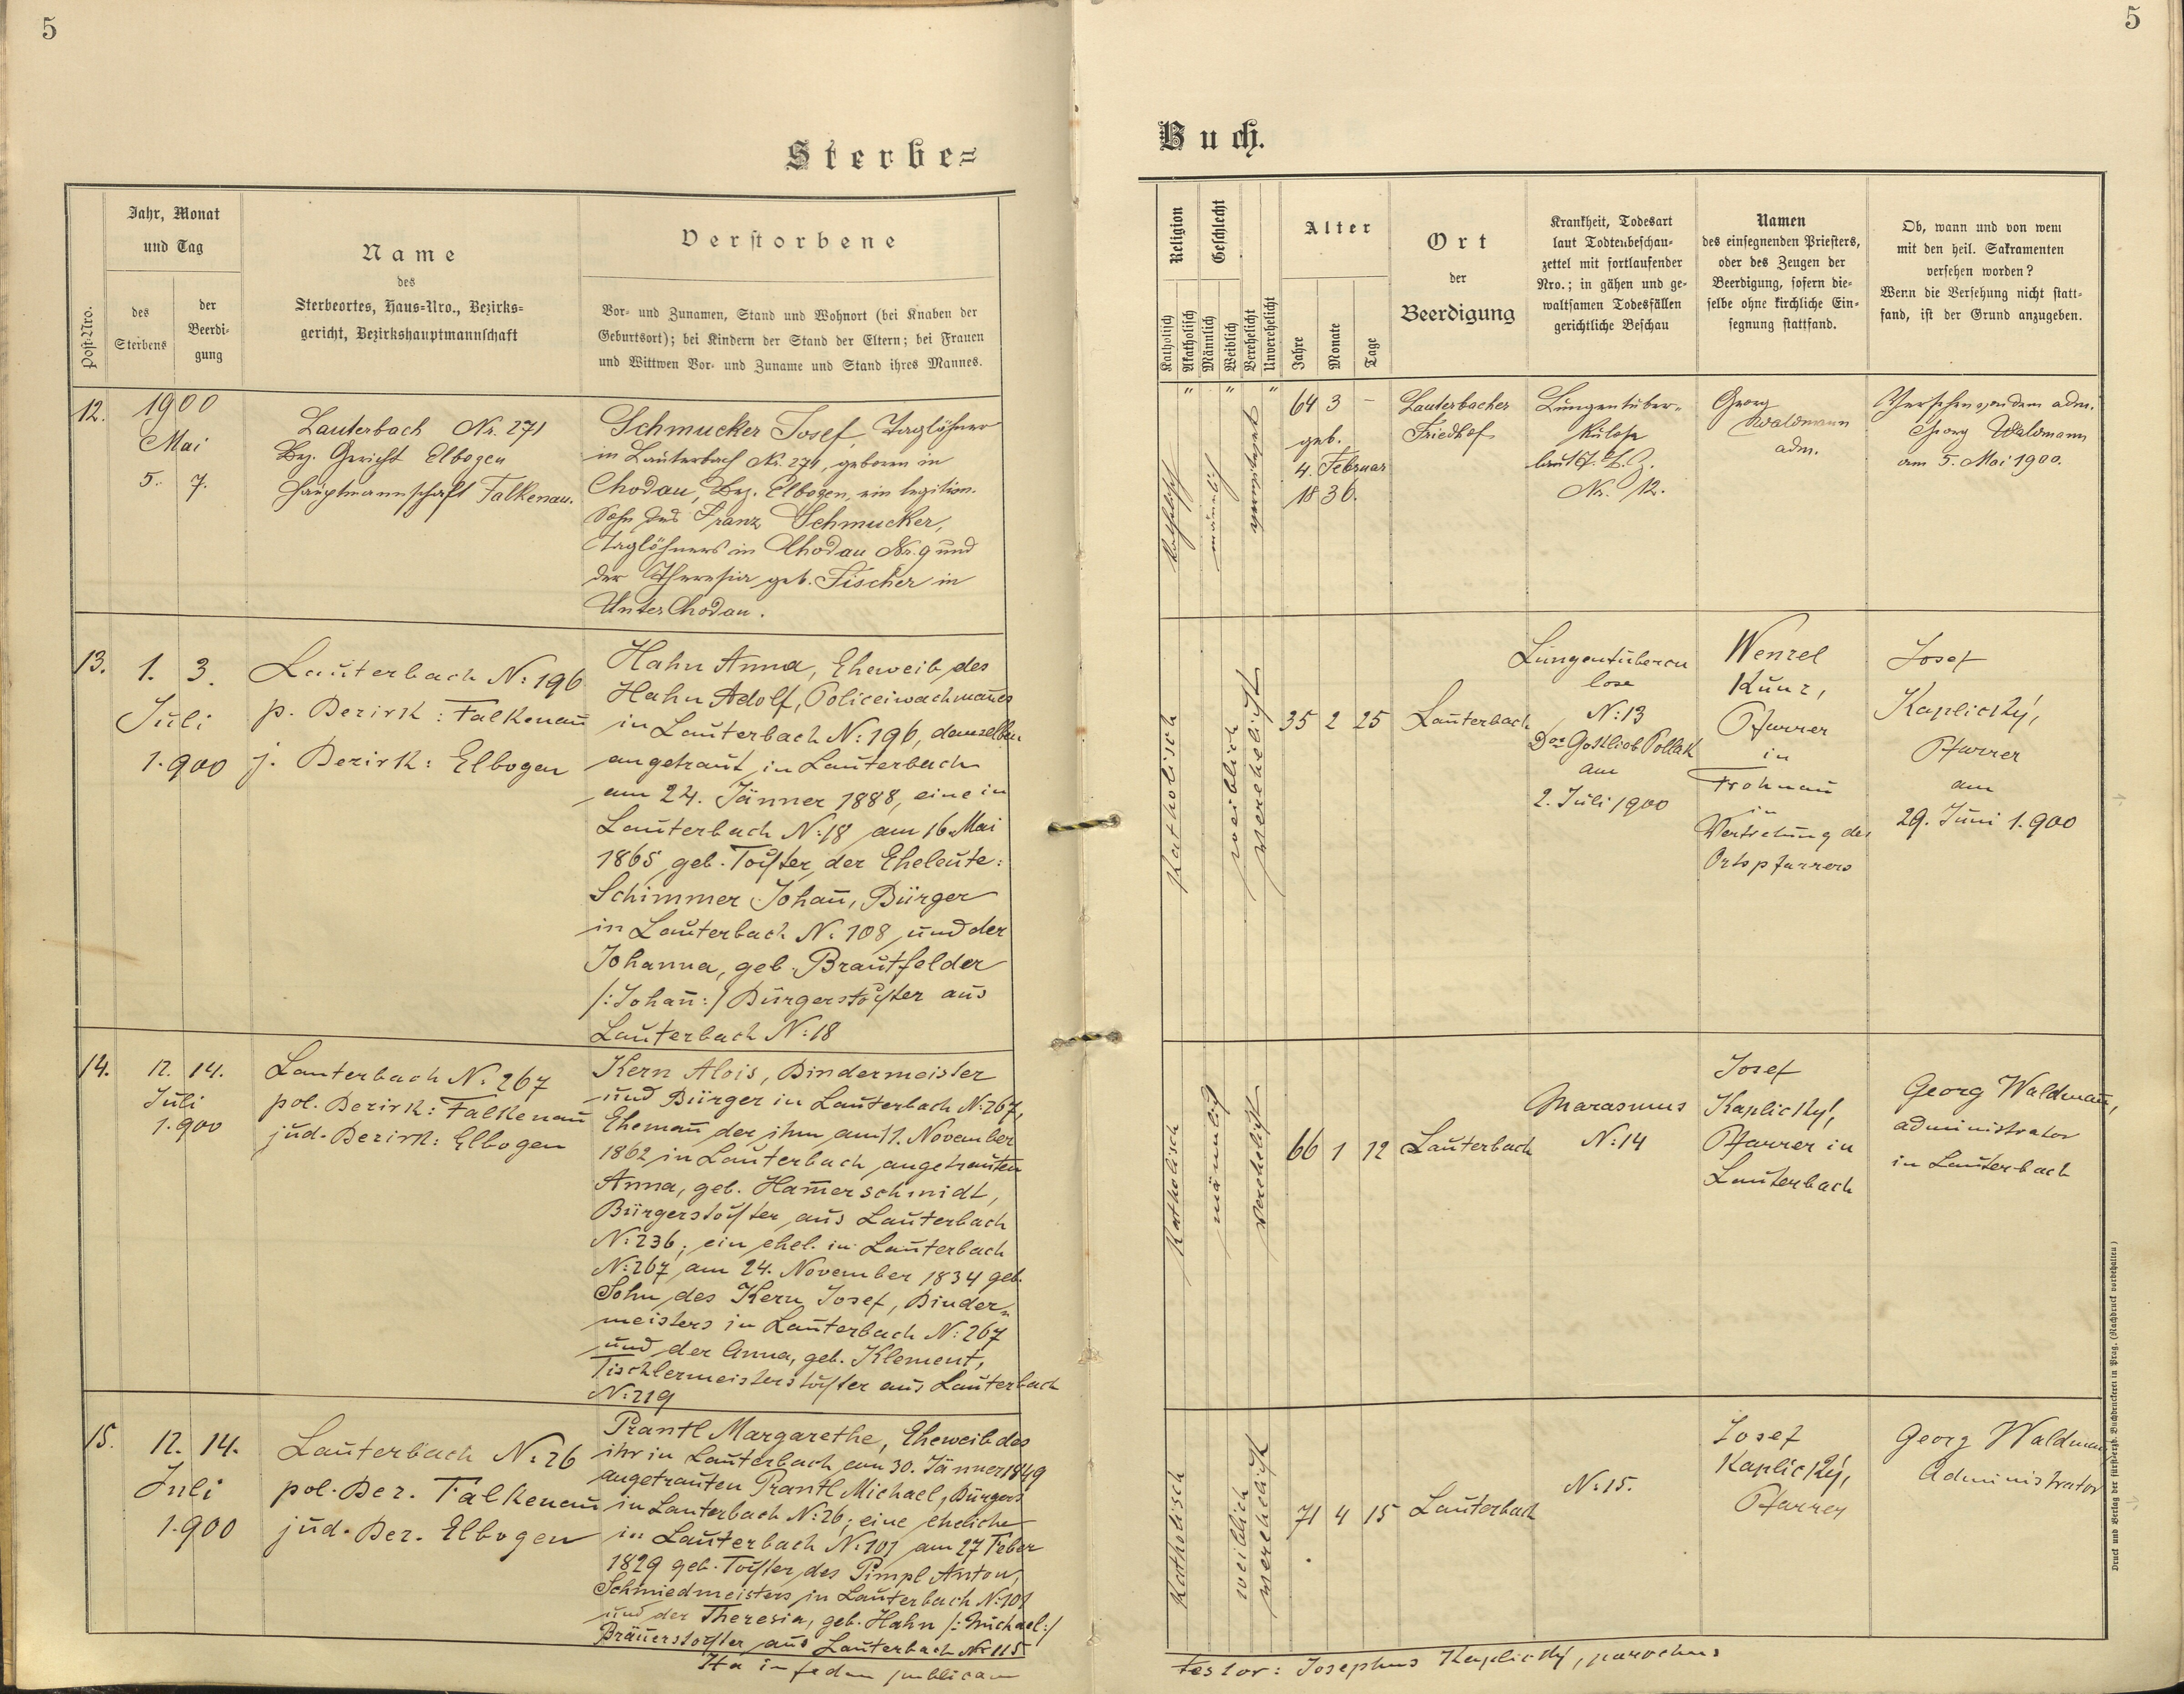 5
Sterbe=
Jahr, Monat
und Tag
Post-Nro.
des
Sterbens
der
Beerdi-
gung
Name
des
Sterbeortes, Haus-Nro., Bezirks-
gericht, Bezirkshauptmannschaft
Verstorbene
Vor- und Zunamen, Stand und Wohnort (bei Knaben der
Geburtsort); bei Kindern der Stand der Eltern; bei Frauen
und Wittwen Vor- und Zuname und Stand ihres Mannes.
12.
1900
Mai
5. 7.
Lauterbach Nr. 271
Bez. Gericht Elbogen
Hauptmannschaft Falkenau.
Schmucker Josef, Taglöhner
in Lauterbach Nr. 271, geboren in
Chodau, Bez. Elbogen, ein legitim.
Sohn des Franz Schmucker,
Taglöhners in Chodau Nr. 9 und
der Theresia geb. Fischer in
Unter Chodau.
13.
1. 3.
Juli
1.900
Lauterbach N: 196
p. Bezirk: Falkenau
j. Bezirk: Elbogen
Hahn Anna, Eheweib des
Hahn Adolf, Policeiwachman̄es
in Lauterbach N: 196, demselben
angetraut in Lauterbach
am 24. Jänner 1888, eine in
Lauterbach N: 18 am 16. Mai
1865 geb. Tochter der Eheleute:
Schimmer Johan̄, Bürger
in Lauterbach N: 108 und der
Johanna, geb. Brautfelder
/:Johan̄:/ Bürgerstochter aus
Lauterbach N: 18
14.
12. 14.
Juli
1.900
Lauterbach N: 267
pol. Bezirk: Falkenau
jud. Bezirk: Elbogen
Kern Alois, Bindermeister
und Bürger in Lauterbach N: 267,
Eheman̄ der ihm am 11. November
1862 in Lauterbach angetrauten
Anna, geb. Ham̄erschmidt,
Bürgerstochter aus Lauterbach
N: 236; ein ehel. in Lauterbach
N: 267 am 24. November 1834 geb.
Sohn des Kern Josef, Binder-
meisters in Lauterbach N: 267
und der Anna, geb. Klement,
Tischlermeisterstochter aus Lauterbach
N: 219
15.
12. 14.
Juli
1.900
Lauterbach N: 26
pol. Bez. Falkenau
jud. Bez. Elbogen
Prantl Margarethe, Eheweib des
ihr in Lauterbach am 30. Jänner 1849
angetrauten Prantl Michael, Bürgers
in Lauterbach N: 26; eine eheliche
in Lauterbach N: 101 am 27 Feber
1829 geb. Tochter des Pimpl Anton,
Schmiedmeisters in Lauterbach N: 101
und der Theresia, geb. Hahn /:Michael:/
Bräuerstochter aus Lauterbach Nr 115
Ita in fidem publicam
5
Buch.
Religion
Katholisch
Akatholisch
Geschlecht
Männlich
Weiblich
Verehelicht
Unverehelicht
Alter
Jahre
Monate
Tage
Ort
der
Beerdigung
Krankheit, Todesart
laut Todtenbeschau-
zettel mit fortlaufender
Nro.; in gähen und ge-
waltsamen Todesfällen
gerichtliche Beschau
Namen
des einsegnenden Priesters,
oder des Zeugen der
Beerdigung, sofern die-
selbe ohne kirchliche Ein-
segnung stattfand.
Ob, wann und von wem
mit den heil. Sakramenten
versehen worden?
Wenn die Versehung nicht statt-
fand, ist der Grund anzugeben.
" " "
katholisch
männlich
64 3 -
geb.
4. Februar
1836.
Lauterbacher
Friedhof
Lungentuber-
kulose
laut T. B. Z.
Nr. 12.
Georg
Waldmann
adm.
Versehen von dem adm.
Georg Waldmann
am 5. Mai 1900.
katholisch
weiblich
verehelicht
35 2 25
Lauterbach
Lungentubercu
lose
N: 13
Dor Gottlieb Pollak
am
2. Juli 1900
Wenzel
Kunz,
Pfarrer
in
Frohnau
in
Vertretung des
Ortspfarrers
Josef
Kaplický,
Pfarrer
am
29. Juni 1.900
katholisch
männlich
verehelicht
66 1 12
Lauterbach
Marasmus
N: 14
Josef
Kaplický,
Pfarrer in
Lauterbach
Georg Waldman̄,
administrator
in Lauterbach
katholisch
weiblich
verehelicht
71 4 15
Lauterbach
N: 15.
Josef
Kaplický,
Pfarrer
Georg Waldman̄
Administrator
testor: Josephus Kaplický, parochus
Druck und Verlag der fürsterzb. Buchdruckerei in Prag. (Nachdruck vorbehalten)